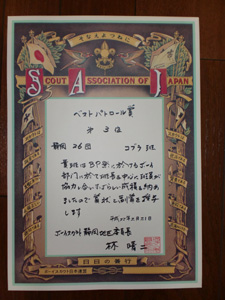 そなえよつねに
SCOUT ASSOCIATION OF JAPAN
ベストパトロール賞
第3位
静岡 26団 コブラ班
貴班はBP祭に於けるボーイ
部門に於て班長を中心に班員が
協力し合いすばらしい成績を納め
ましたので賞状と副賞を授与
します
ボーイスカウト静岡地区委員長
林 晴二
日日の善行
ボーイスカウト日本連盟